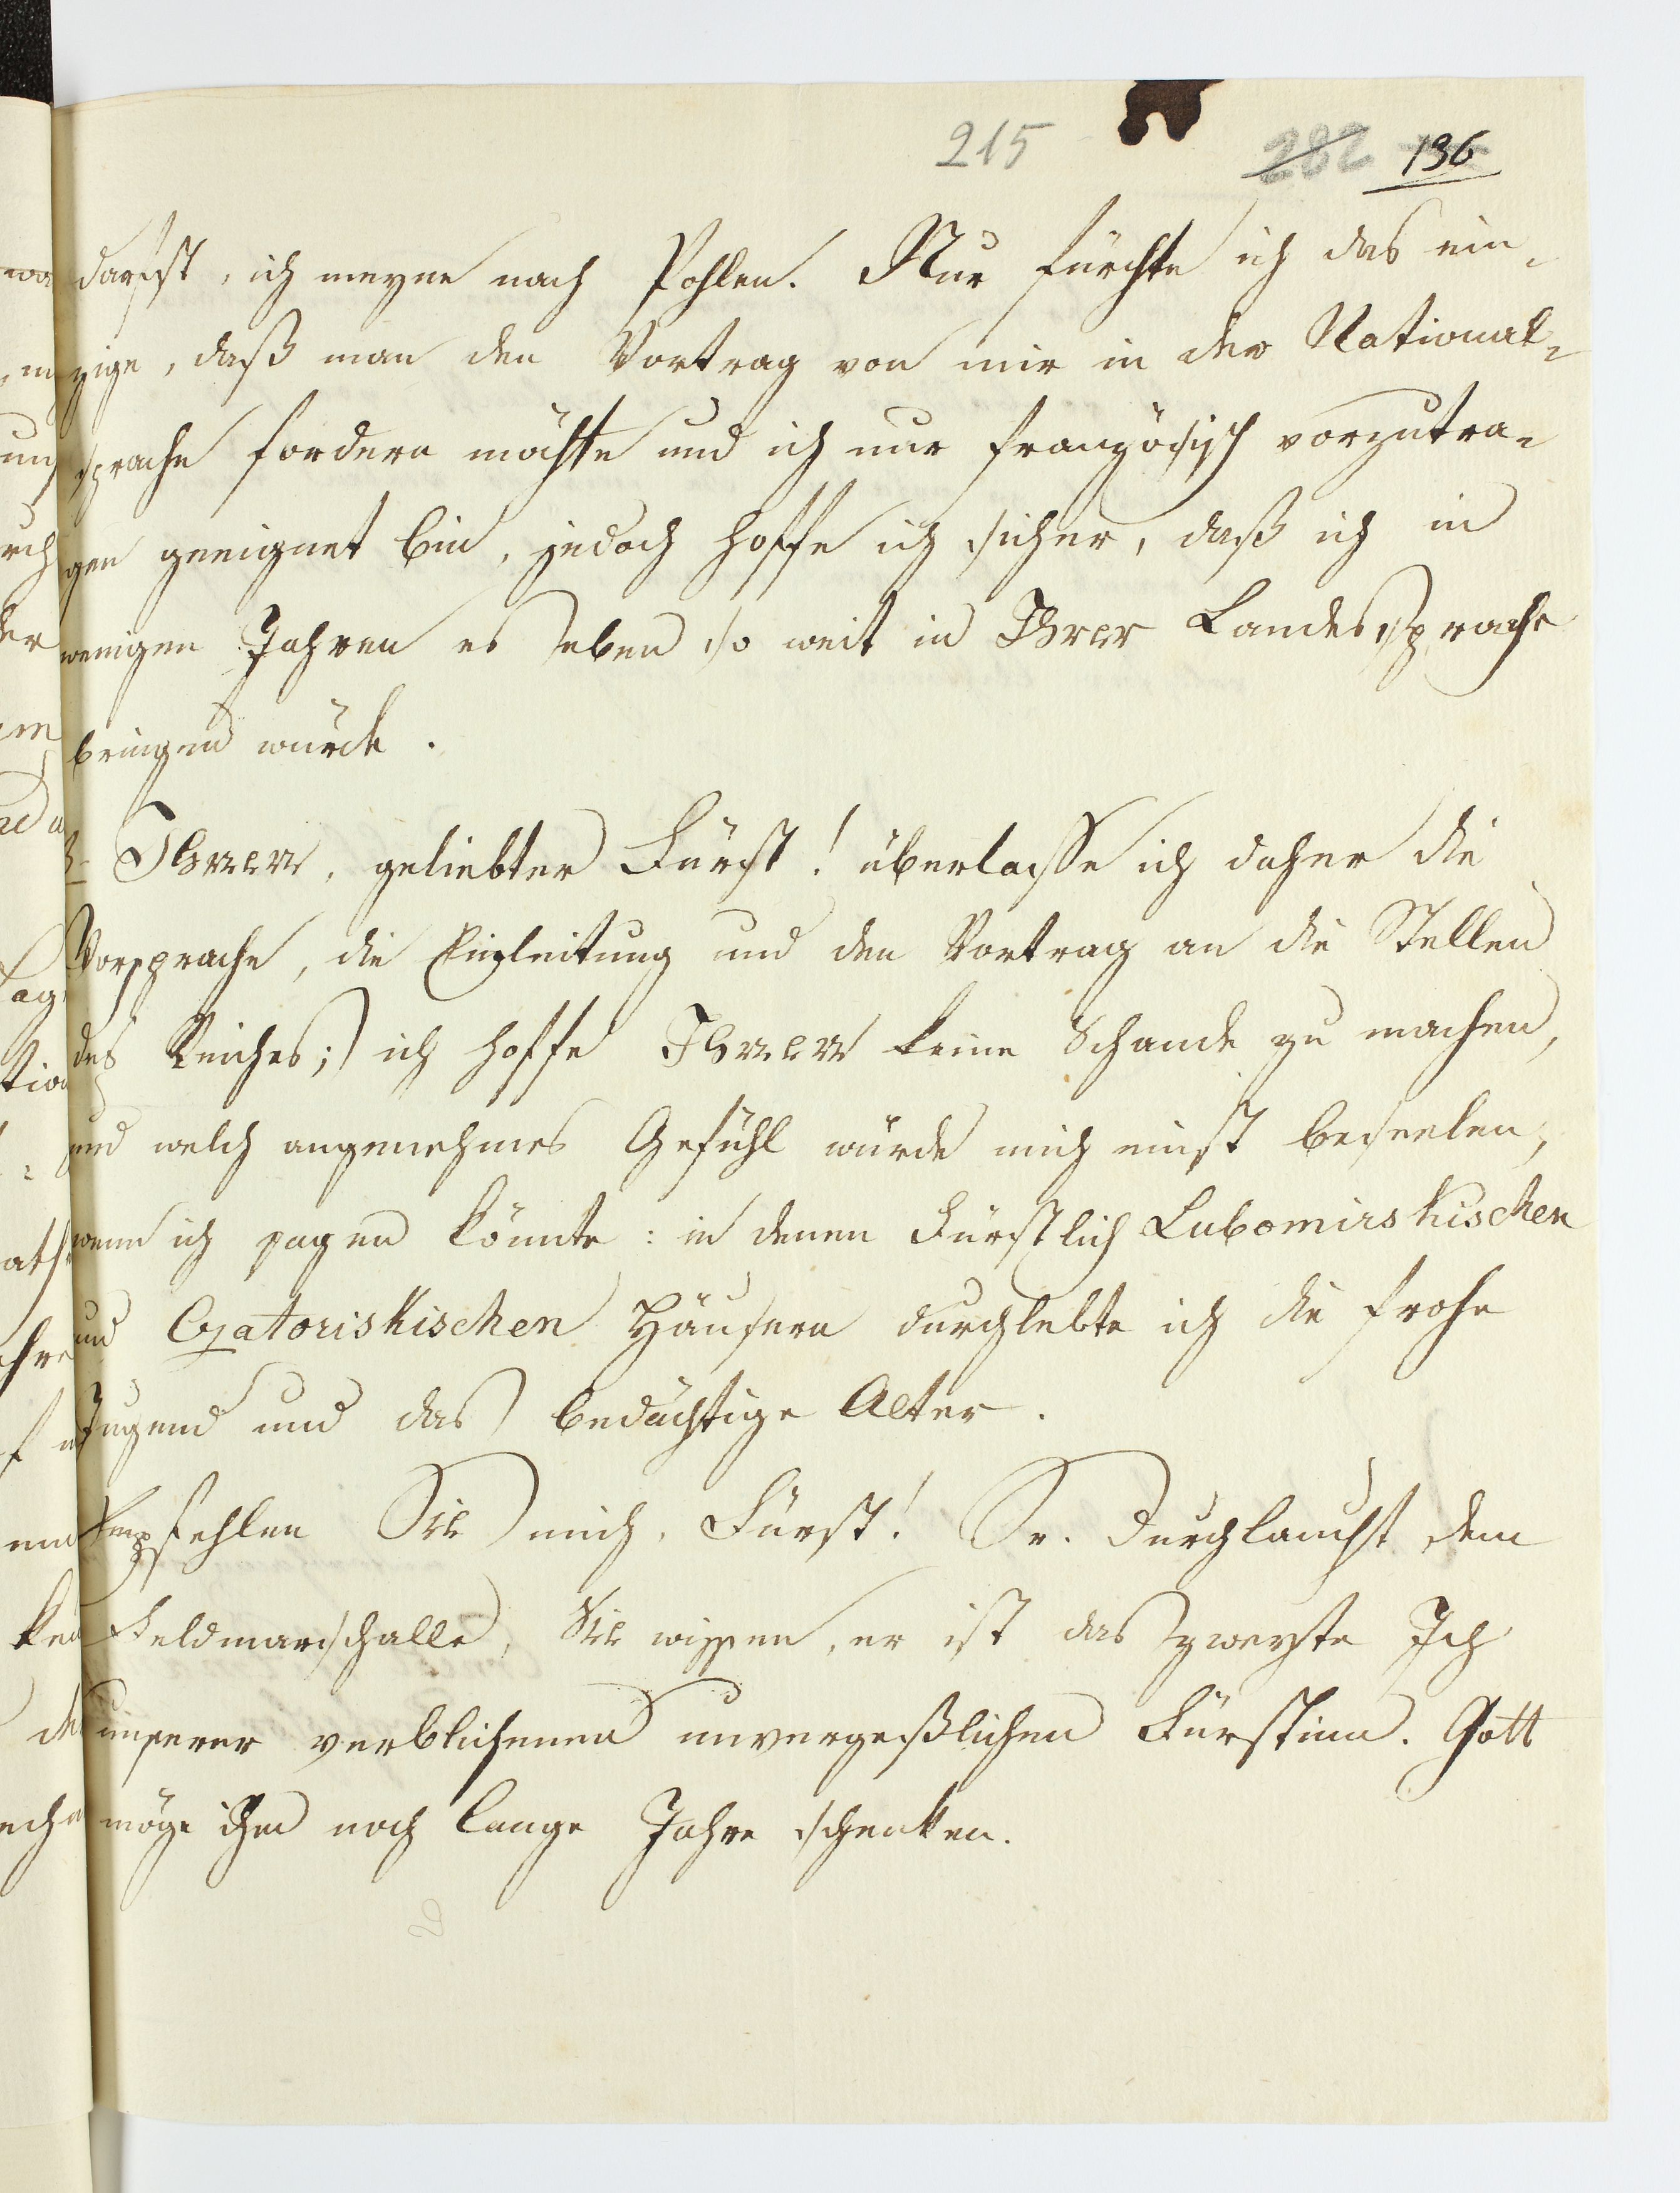 215 282 136
darfst, ich meyne nach Pohlen. Nur fürchte ich das ein-
zige, daß man den Vortrag von mir in der National-
sprache fordern möchte und ich nur französisch vorzutra-
gen geeignet bin, jedoch hoffe ich sicher, daß ich in
wenigen Jahren es eben so weit in Ihrer Landessprache
bringen würde.
Ihnen, geliebter Fürst! überlasse ich daher die
Vorsprache, die Einleitung und den Vortrag an die Stellen
des Reiches; ich hoffe Ihnen keine Schande zu machen,
und welch angenehmes Gefühl würde mich einst beseelen,
wenn ich sagen könnte: in denen Fürstlich Lubomirskischen
und Czatoriskischen Häusern durchlebte ich die frohe
Jugend und das bedächtige Alter.
Empfehlen Sie mich, Fürst! Sr. Durchlaucht dem
Feldmarschalle, Sie wissen, er ist das zweyte Ich
unserer verblichenen unvergeßlichen Fürstinn. Gott
möge ihm noch lange Jahre schenken.